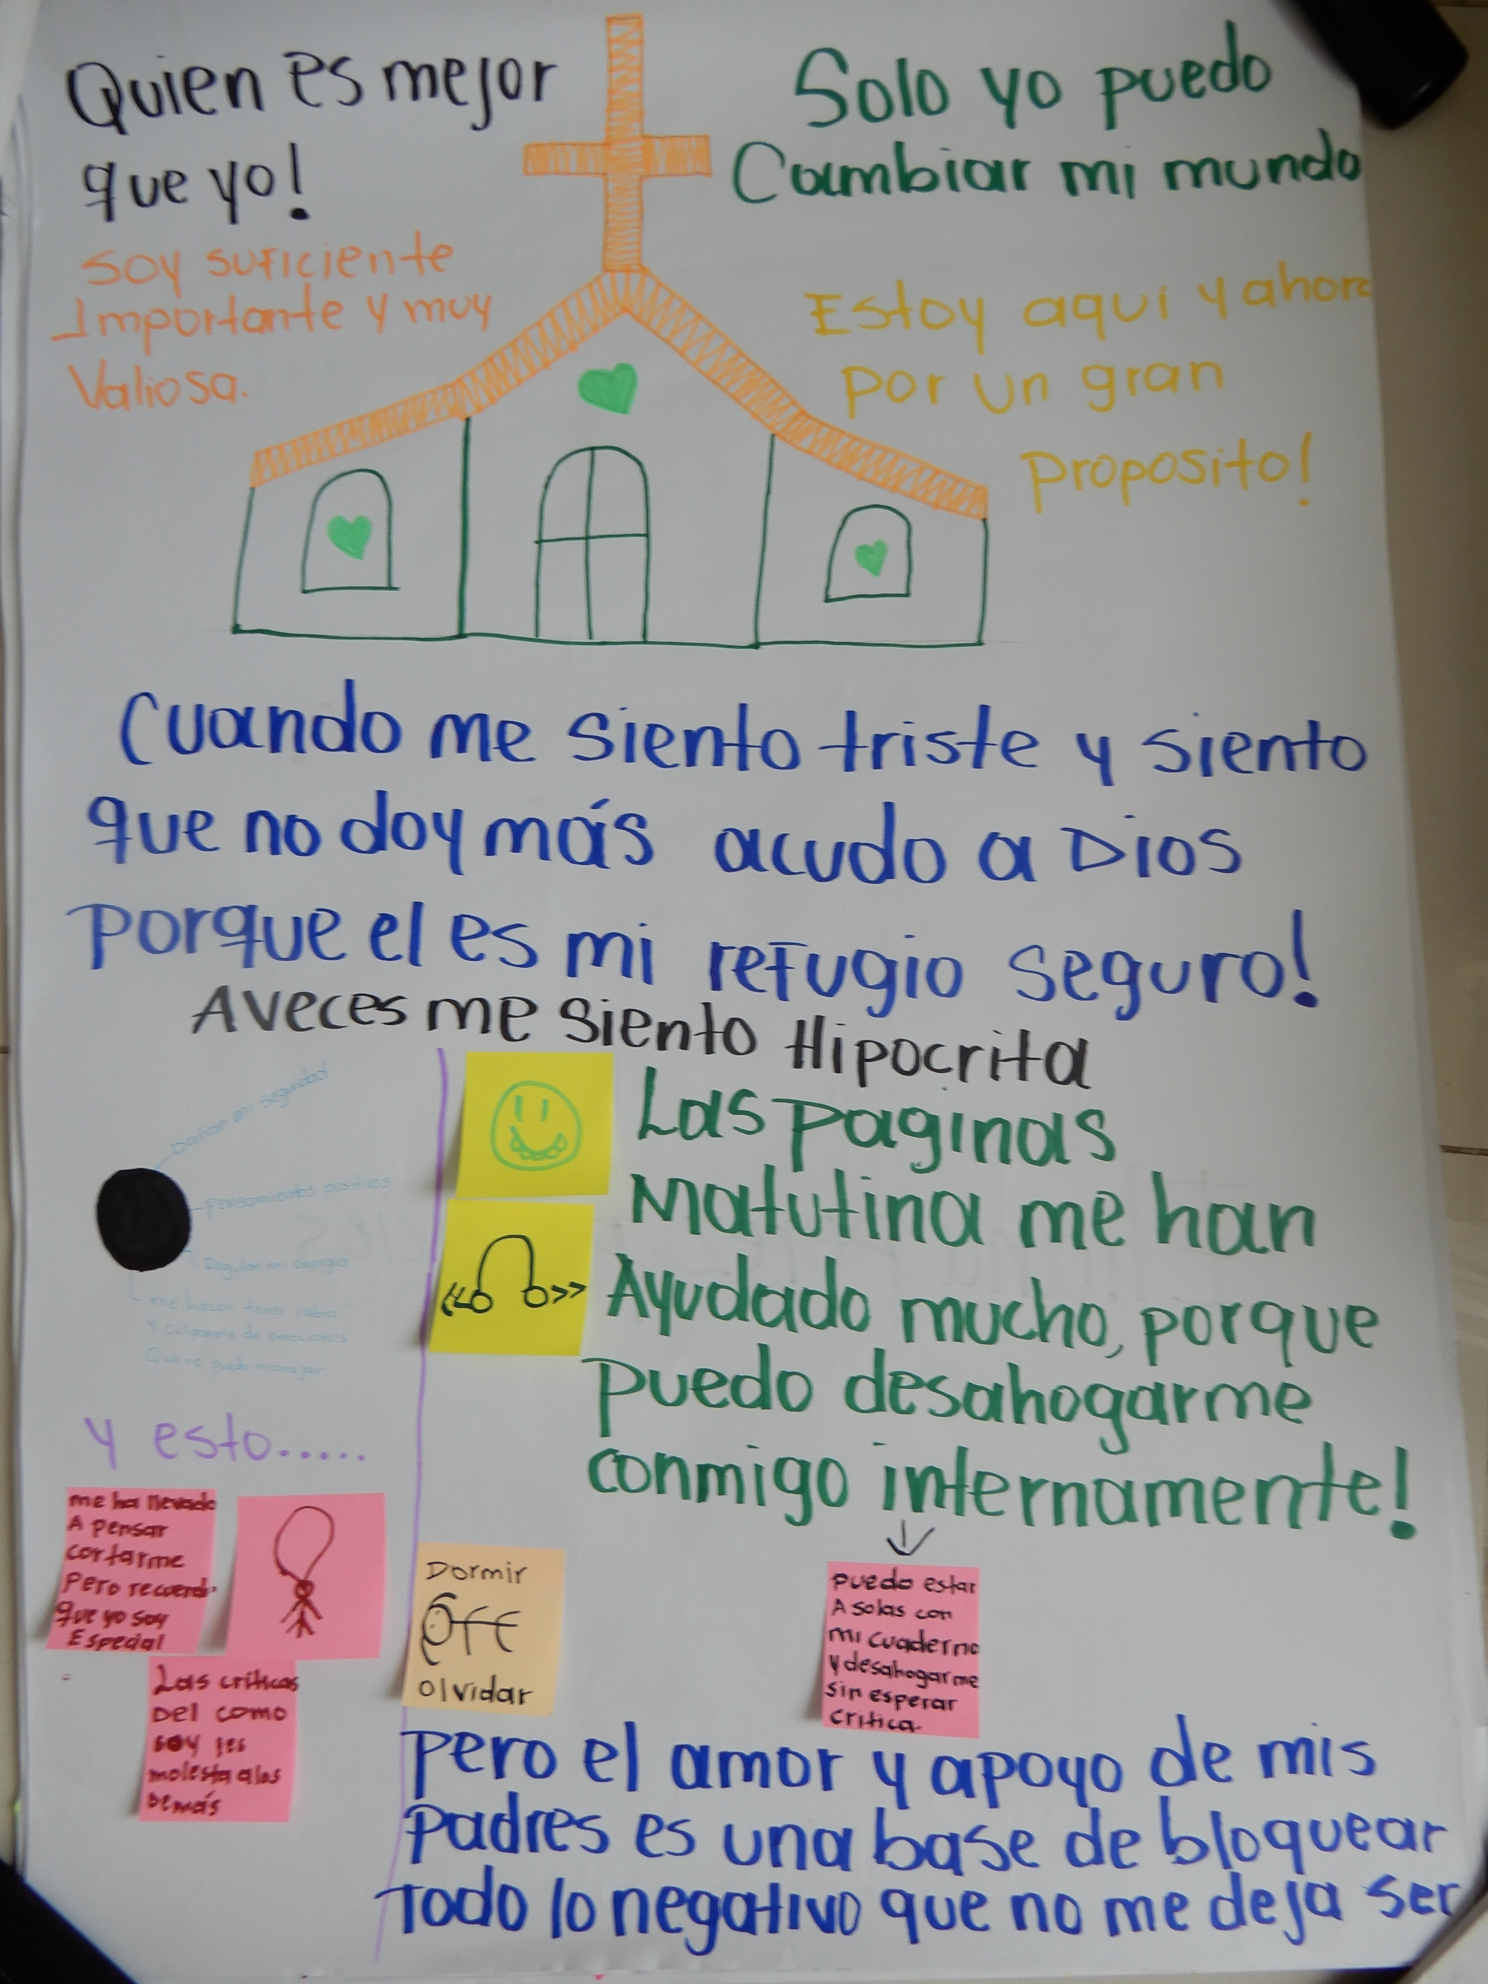 Quien es mejor
que yo!
Soy suficiente
Importante y muy
Valiosa.
Solo yo puedo
Cambiar mi mundo
Estoy aqui y ahora
por un gran
proposito!
Cuando me siento triste y siento
que no doy más acudo a Dios
porque el es mi refugio seguro!
Aveces me siento Hipocrita
Dañan mi seguridad
pensamientos positivos
Regulan mi energia
me hacen tener rabia
y culparme de emociones
Que no puedo manejar
Las paginas
Matutina me han
Ayudado mucho, porque
puedo desahogarme
conmigo internamente!
y esto......
me ha llevado
A pensar
cortarme
pero recuerdo
que yo soy
Especial
Las criticas
Del como
soy les
molesta a los
Demás
Dormir
OFF
olvidar
puedo estar
A solas con
mi cuaderno
y desahogarme
sin esperar
critica.
pero el amor y apoyo de mis
padres es una base de bloquear
todo lo negativo que no me deja ser